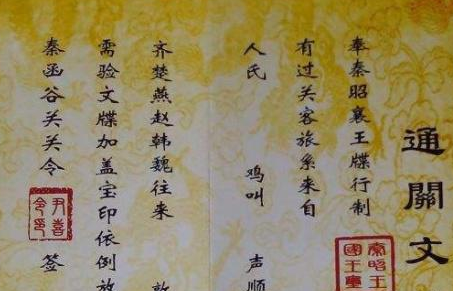 通關文
奉秦昭襄王牒行制
有过关客旅系来自
人民 鸡叫 声顺
齐楚燕赵韩魏往来
需验文牒加盖宝印依例放
秦函谷关关令 签
尹喜
令印
秦昭王
國王